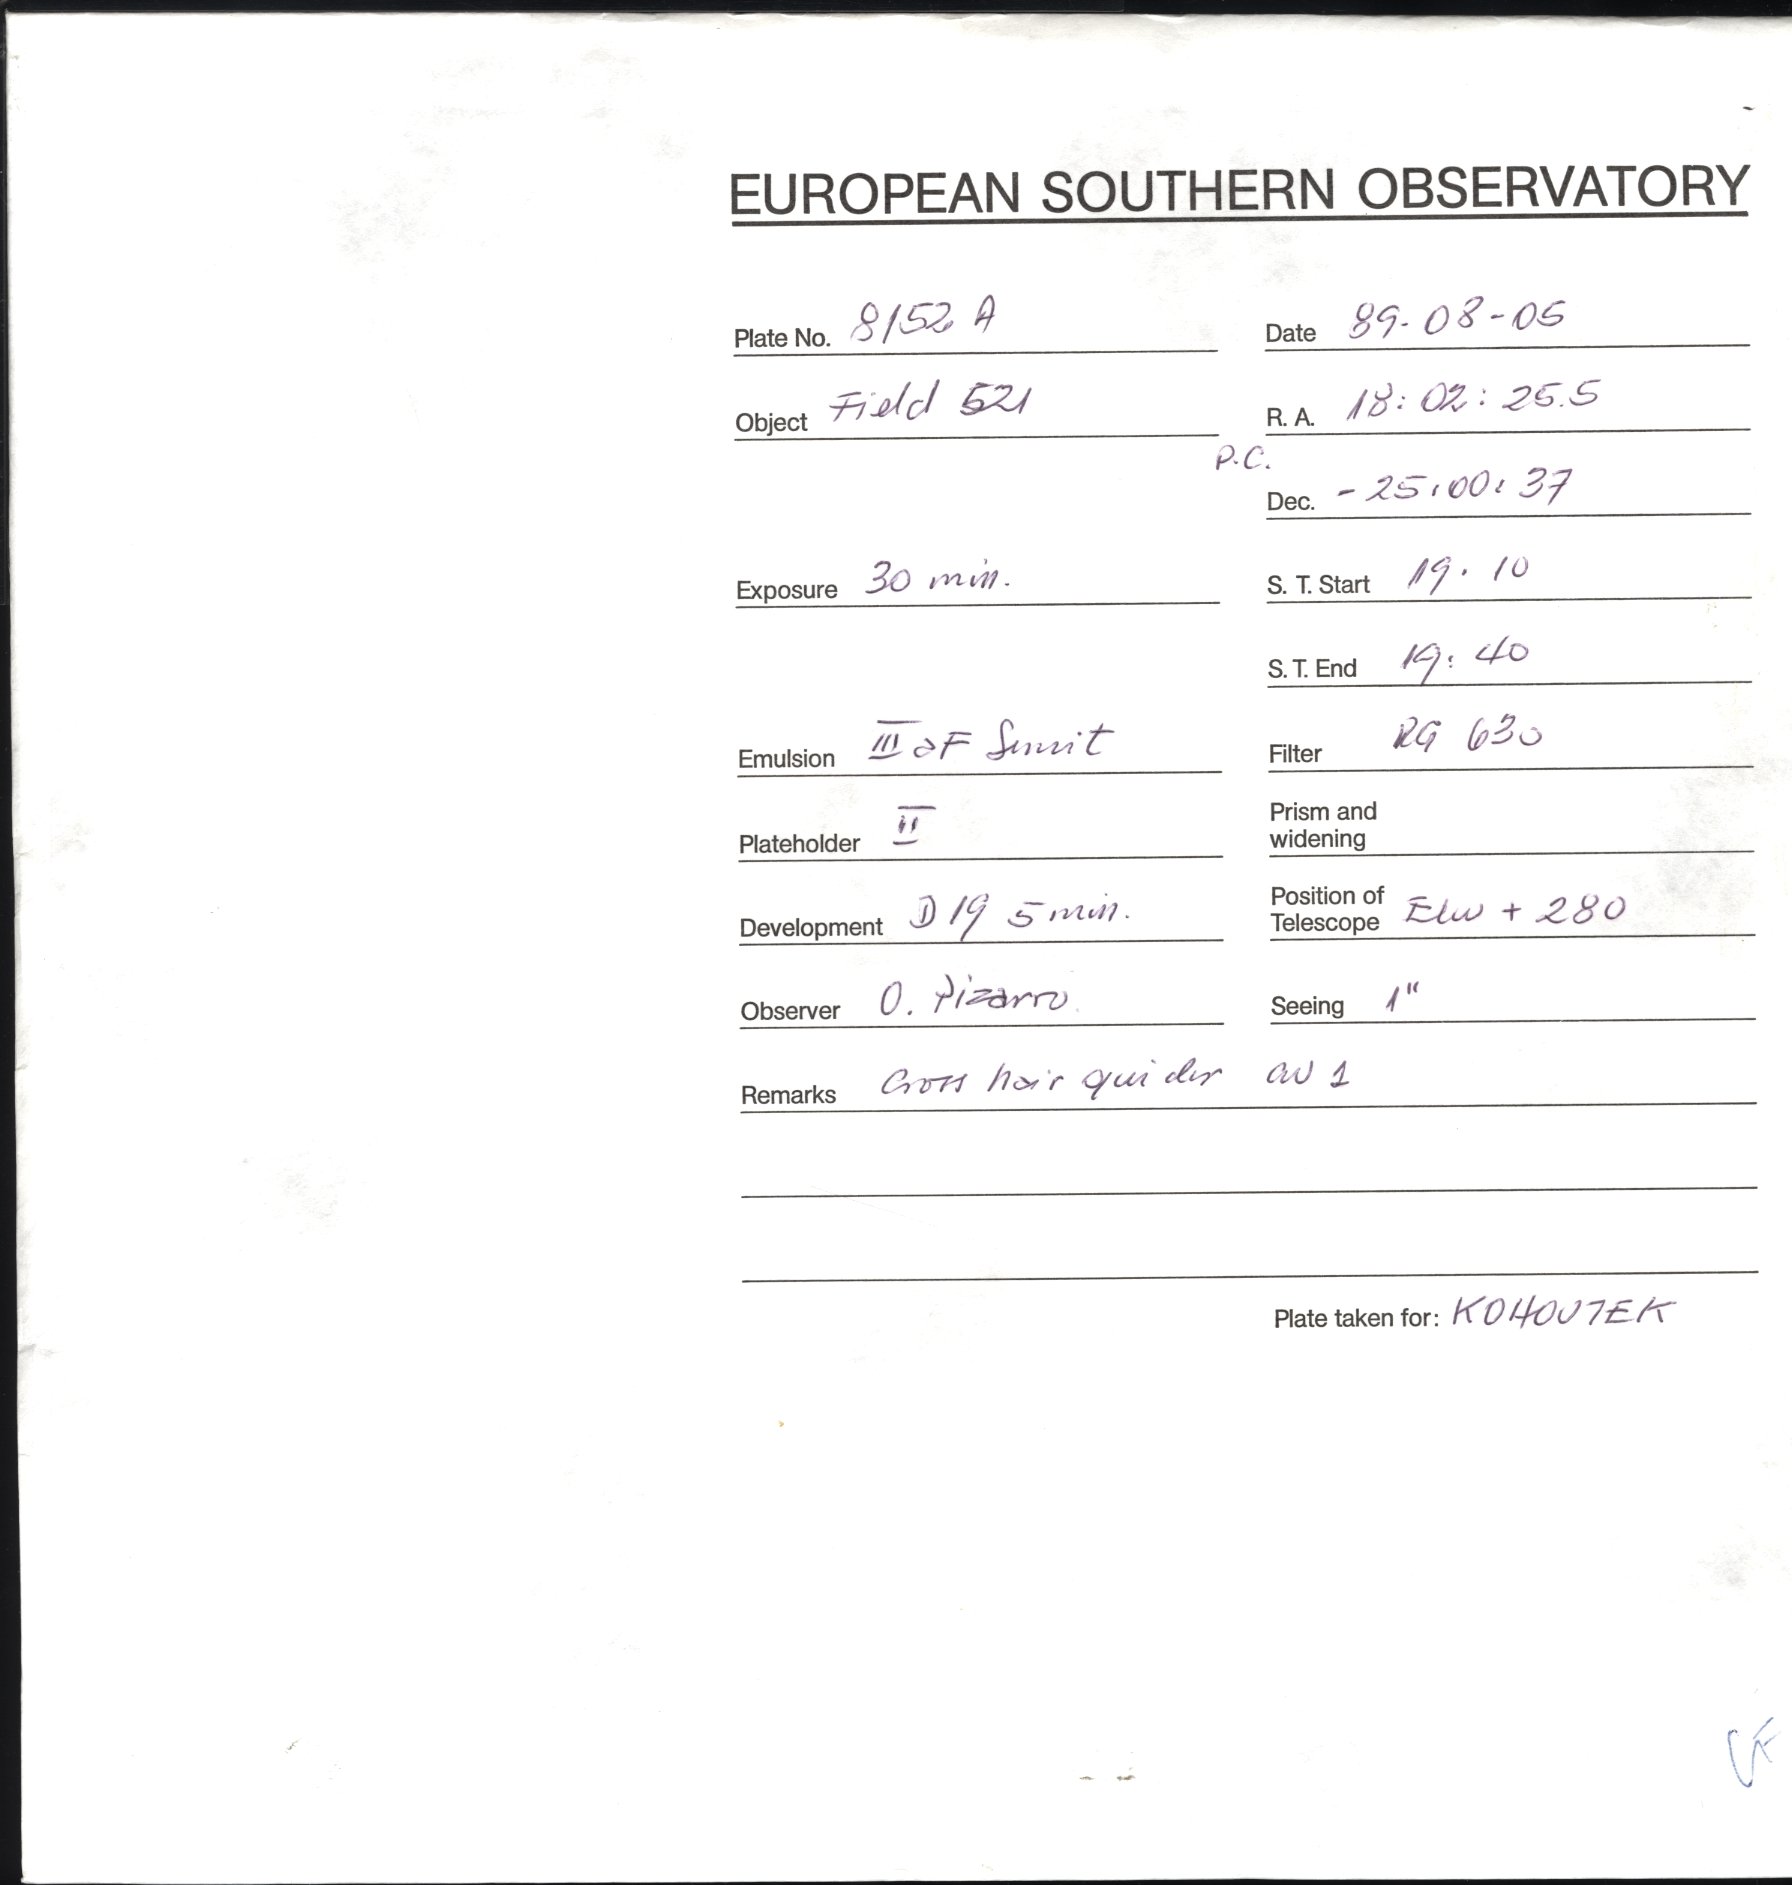 EUROPEAN SOUTHERN OBSERVATORY
Plate No. 8152 A Date 89-08-05
Object Field 521 R. A. 18:02:25.5
P.C.
Dec. -25:00:37
Exposure 30 min. S. T. Start 19.10
S. T. End 19:40
Emulsion III aF Filter RG 630
Plateholder II Prism and
widening
Development D 19 5 min. Position of
Telescope + 280
Observer O. Pizarro Seeing 1"
Remarks Cross hair guider 1
Plate taken for: KOHOUTEK